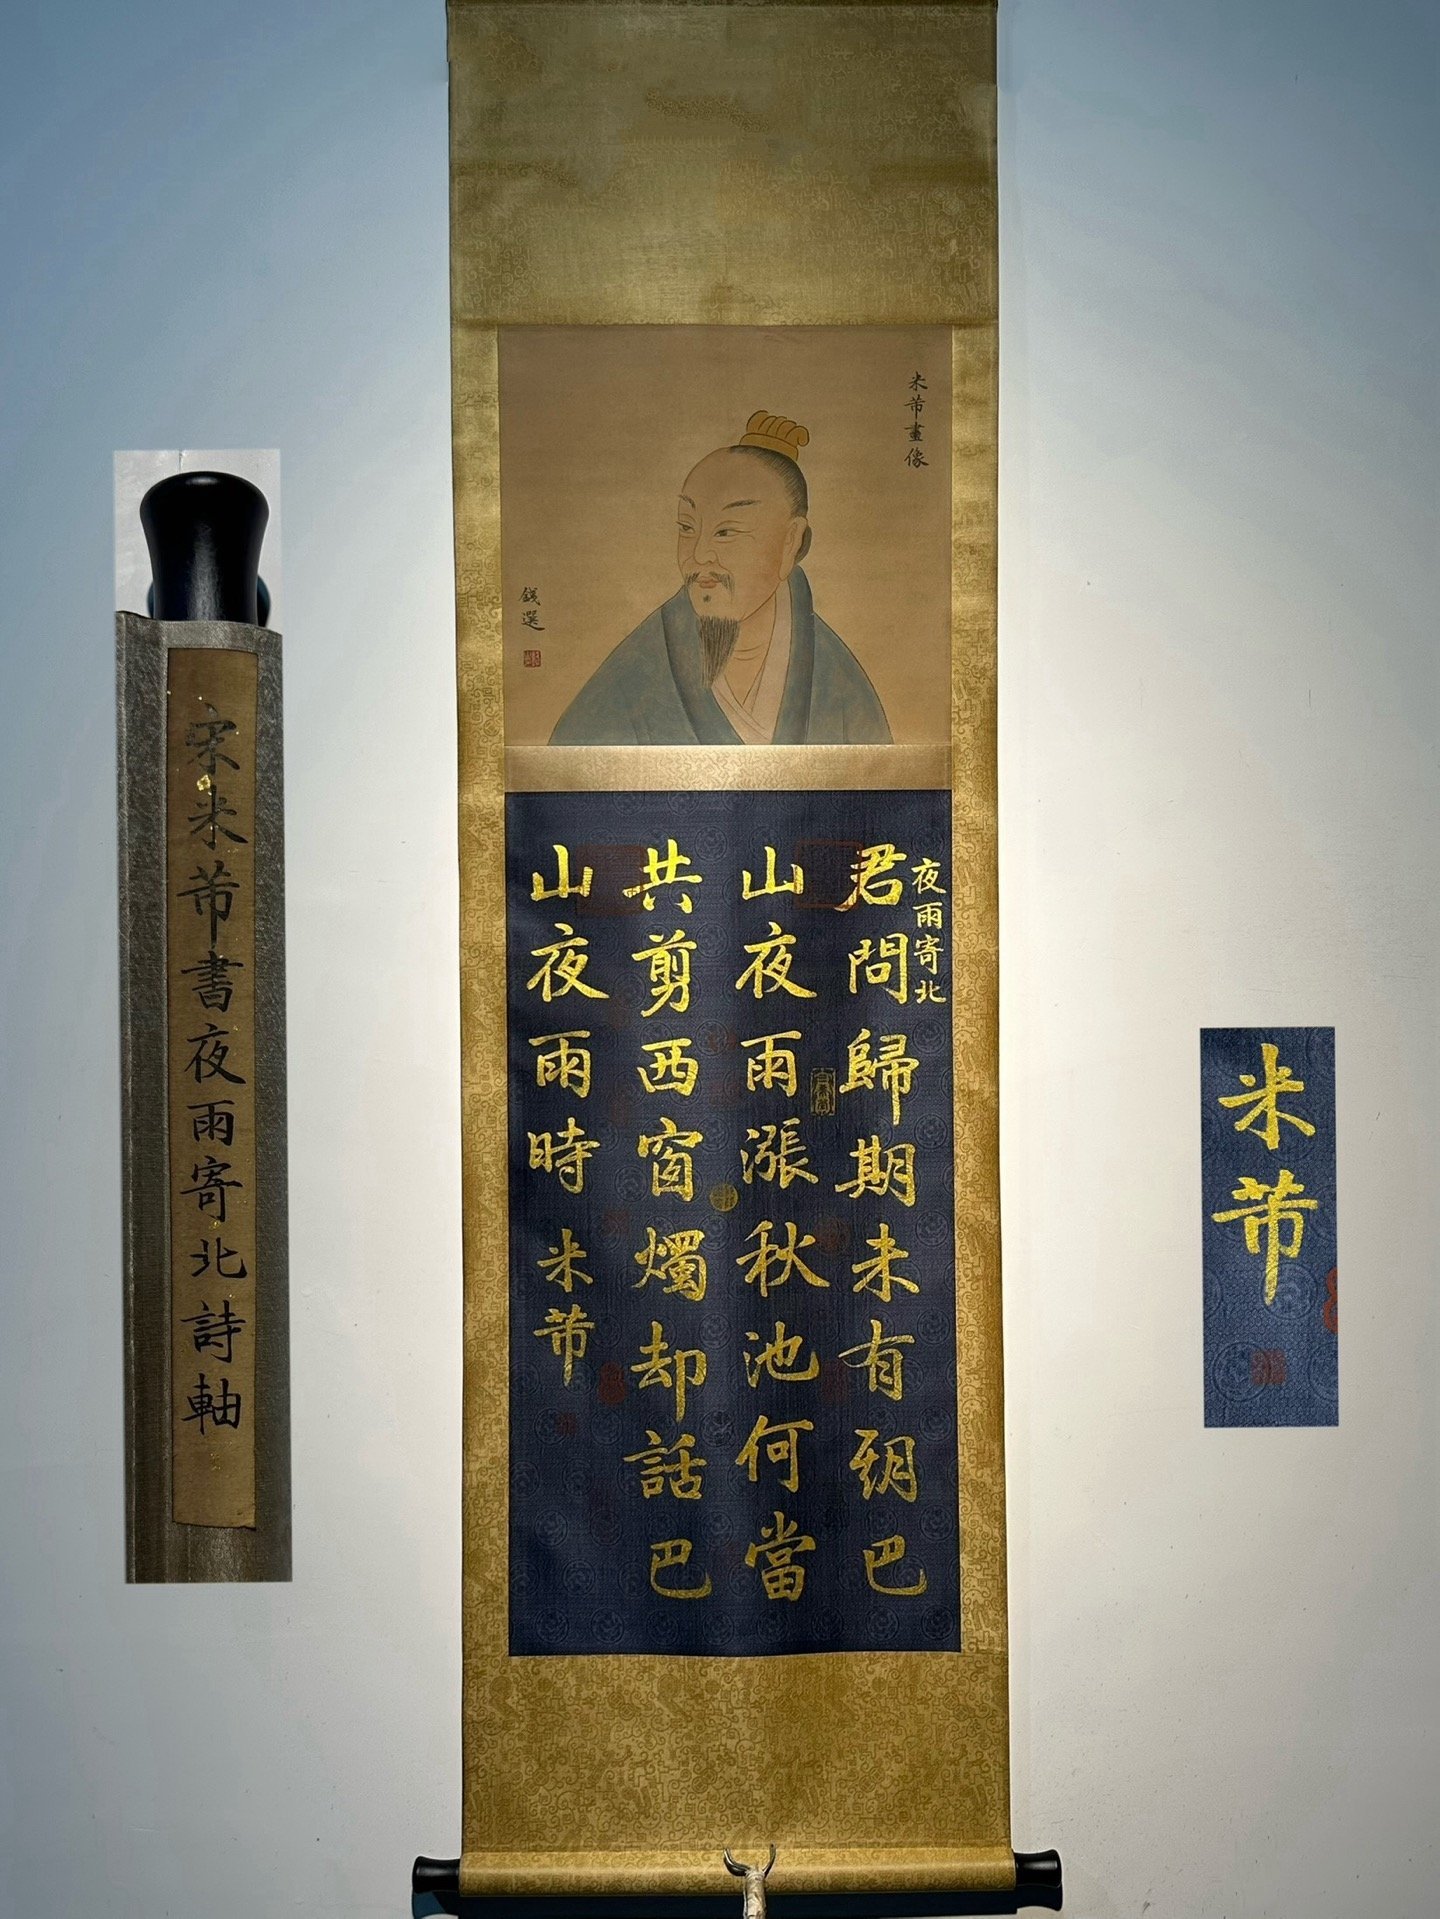 宋米芾書夜雨寄北詩軸
米芾畫像
錢選
夜雨寄北
君問歸期未有巴
山夜雨漲秋池何當
共剪西窗燭却話巴
山夜雨時 米芾
米芾